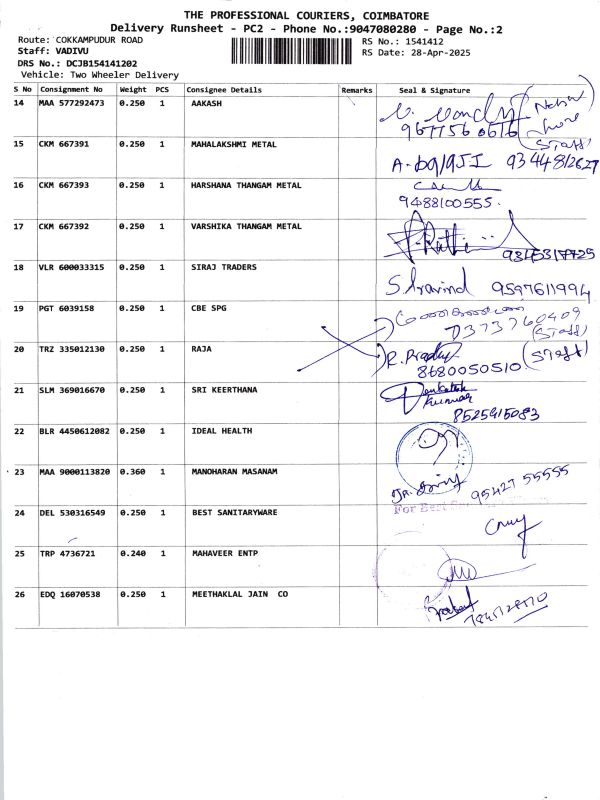 THE PROFESSIONAL COURIERS, COIMBATORE
Delivery Runsheet - PC2 - Phone No.:9047080280 - Page No.:2
Route: COKKAMPUDUR ROAD RS No.: 1541412
Staff: VADIVU RS Date: 28-Apr-2025
DRS No.: DCJB154141202
Vehicle: Two Wheeler Delivery
S No Consignment No Weight PCS Consignee Details Remarks Seal & Signature
14 MAA 577292473 0.250 1 AAKASH
9677560616
15 CKM 667391 0.250 1 MAHALAKSHMI METAL
(Staff)
9344812627
16 CKM 667393 0.250 1 HARSHANA THANGAM METAL
9488100555.
17 CKM 667392 0.250 1 VARSHIKA THANGAM METAL
9345317725
18 VLR 600033315 0.250 1 SIRAJ TRADERS
S. Aravind 9597611994
19 PGT 6039158 0.250 1 CBE SPG
7373760409
(Staff)
20 TRZ 335012130 0.250 1 RAJA
R. (Staff)
8680050510
21 SLM 369016670 0.250 1 SRI KEERTHANA
Venkatesh
Kumar
8525915083
22 BLR 4450612082 0.250 1 IDEAL HEALTH
23 MAA 9000113820 0.360 1 MANOHARAN MASANAM
95427 55555
24 DEL 530316549 0.250 1 BEST SANITARYWARE
For Best
25 TRP 4736721 0.240 1 MAHAVEER ENTP
26 EDQ 16070538 0.250 1 MEETHAKLAL JAIN CO